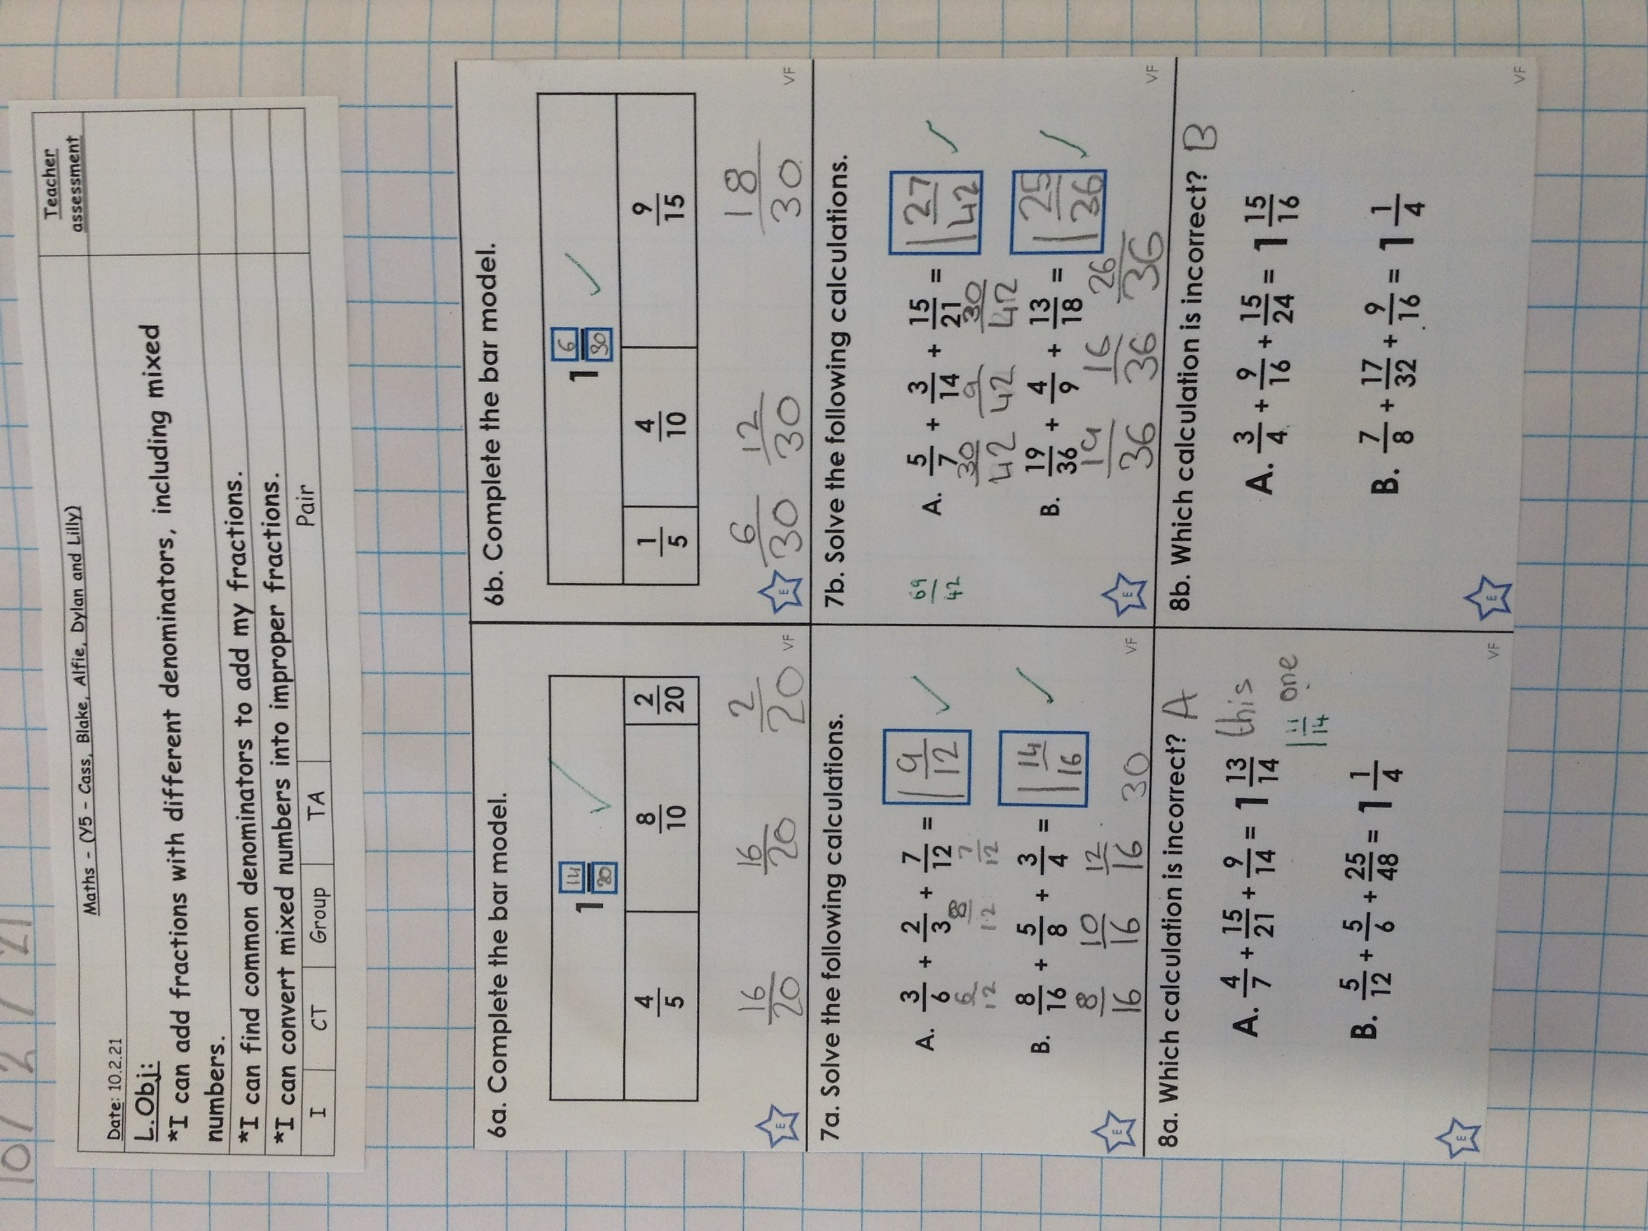 10/2/21
Maths - (Y5 - Cass, Blake, Alfie, Dylan and Lilly)
Teacher assessment
Date: 10.2.21
L.Obj:
*I can add fractions with different denominators, including mixed
numbers.
*I can find common denominators to add my fractions.
*I can convert mixed numbers into improper fractions.
I CT Group TA Pair
6a. Complete the bar model.
1 14/20
4/5 8/10 2/20
16/20 16/20 2/20
E VF
6b. Complete the bar model.
1 6/30
1/5 4/10 9/15
6/30 12/30 18/30
E VF
7a. Solve the following calculations.
A. 3/6 + 2/3 + 7/12 = 1 9/12
6/12 8/12 7/12
B. 8/16 + 5/8 + 3/4 = 1 14/16
8/16 10/16 12/16 30
E VF
7b. Solve the following calculations.
A. 5/7 + 3/14 + 15/21 = 1 27/42
69/42 30/42 9/42 30/42
B. 19/36 + 4/9 + 13/18 = 1 25/36
19/36 16/36 26/36
E VF
8a. Which calculation is incorrect? A
A. 4/7 + 15/21 + 9/14 = 1 13/14 this one
1 11/14
B. 5/12 + 5/6 + 25/48 = 1 1/4
E VF
8b. Which calculation is incorrect? B
A. 3/4 + 9/16 + 15/24 = 1 15/16
B. 7/8 + 17/32 + 9/16 = 1 1/4
E VF